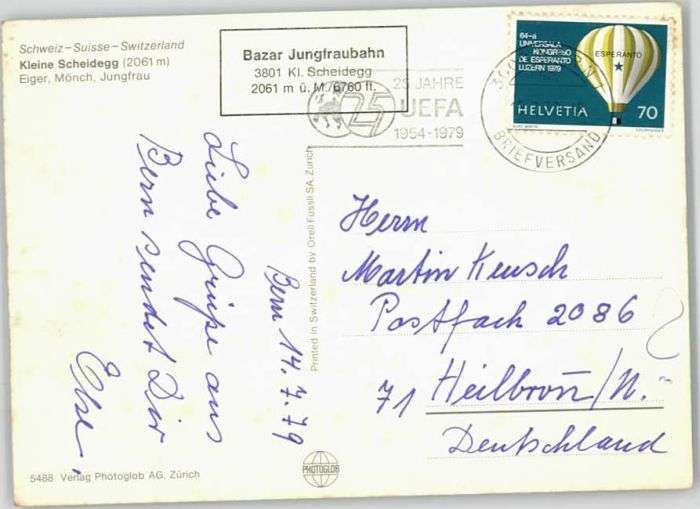 Schweiz – Suisse – Switzerland
Kleine Scheidegg (2061 m)
Eiger, Mönch, Jungfrau
Bazar Jungfraubahn
3801 Kl. Scheidegg
2061 m ü. M. 6760 ft.
25 JAHRE
UEFA
1954-1979
25
BRIEFVERSAND
64-a
UNIVERSALA
KONGRESO
DE ESPERANTO
LUZERN 1979
ESPERANTO
HELVETIA 70
Bern 14.7.79
Liebe Grüße aus
Bern sendet Dir
Else,
Printed in Switzerland by Orell Füssli SA, Zürich
Herrn
Martin Keusch
Postfach 2086
71 Heilbronn̄/N.
Deutschland
PHOTOGLOB
5488 Verlag Photoglob AG, Zürich